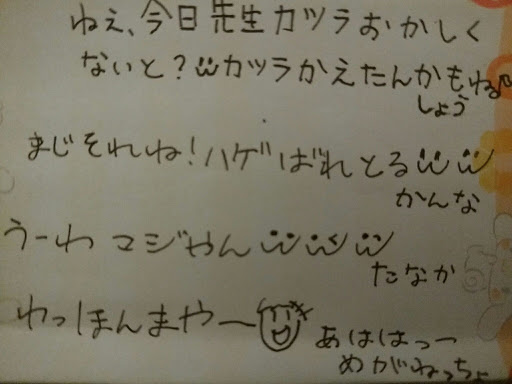 ねぇ、今日先生カツラおかしく
ないと？カツラかえたんかもね♪
しょう
まじそれね！ハゲばれとる
かんな
うーわ マジやん
たなか
わっほんまやー
あははっー
めがねっちょ